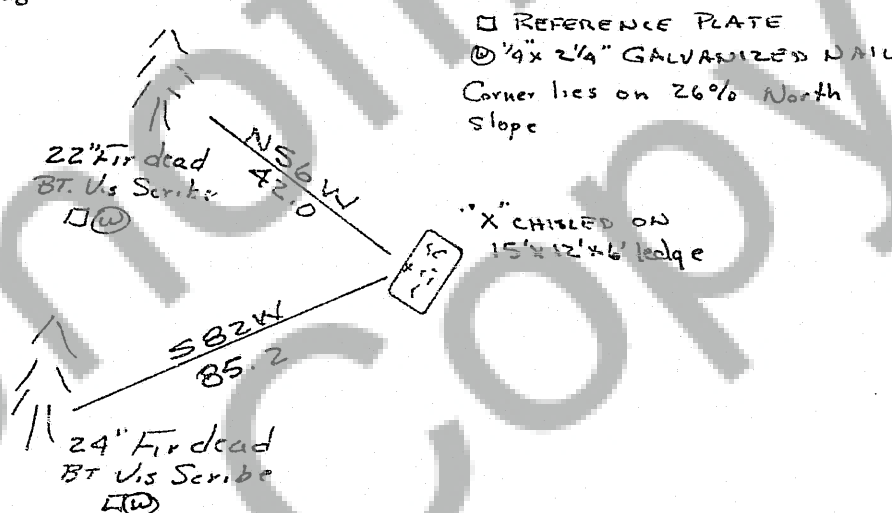 □ REFERENCE PLATE
Ⓦ 1/4" x 2 1/4" GALVANIZED NAIL
Corner lies on 26% North
Slope
N56W
42.0
22" Fir dead
BT. Vis Scribe
□Ⓦ
"X" CHISLED ON
15'x12'x6' ledge
S82W
85.2
24" Fir dead
BT Vis Scribe
□Ⓦ
Copy